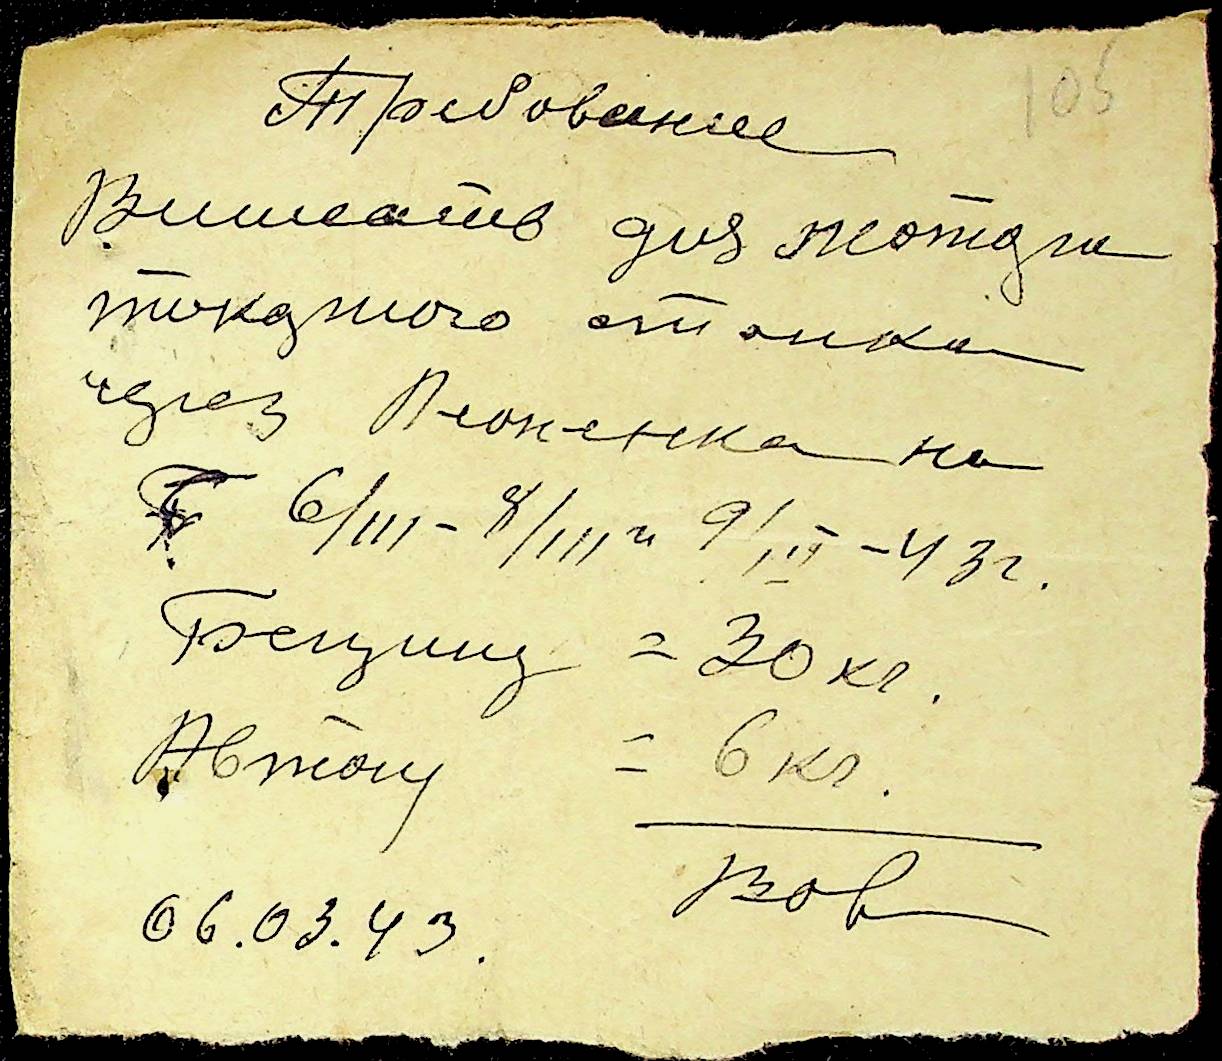 105
Требование
Выписать для мотора
токарного станка
через на
6/III - 8/III и 9/III - 43 г.
Бензину = 30 кг.
Автолу = 6 кг.
06.03.43.